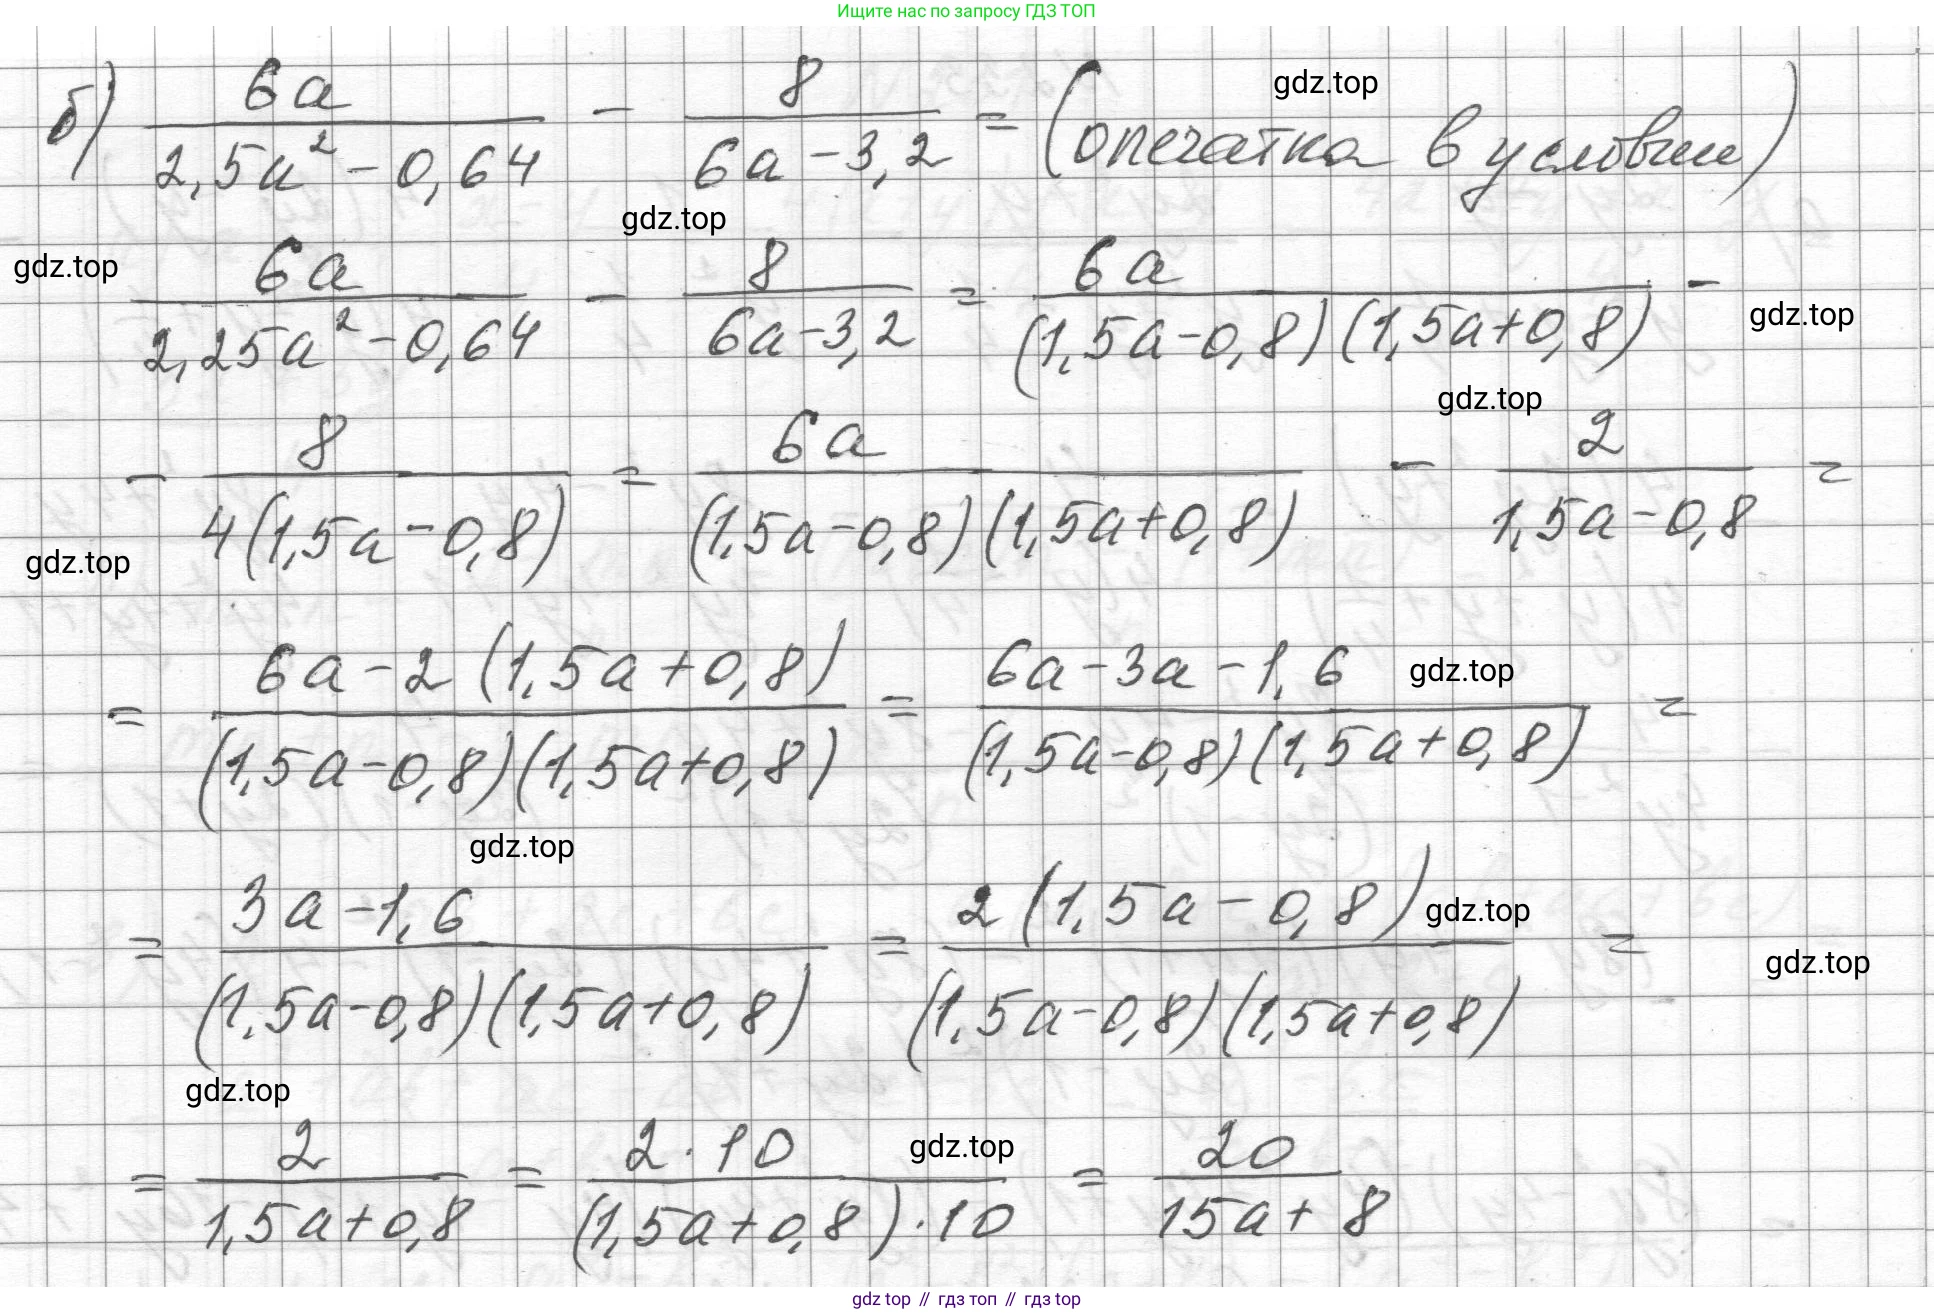 Ищите нас по запросу ГДЗ ТОП
б) 6a / (2,5a² - 0,64) - 8 / (6a - 3,2) = (опечатка в условии)
gdz.top
gdz.top
gdz.top
6a / (2,25a² - 0,64) - 8 / (6a - 3,2) = 6a / ((1,5a - 0,8)(1,5a + 0,8)) -
gdz.top
gdz.top
- 8 / (4(1,5a - 0,8)) = 6a / ((1,5a - 0,8)(1,5a + 0,8)) - 2 / (1,5a - 0,8) =
gdz.top
= (6a - 2(1,5a + 0,8)) / ((1,5a - 0,8)(1,5a + 0,8)) = (6a - 3a - 1,6) / ((1,5a - 0,8)(1,5a + 0,8)) =
gdz.top
gdz.top
= (3a - 1,6) / ((1,5a - 0,8)(1,5a + 0,8)) = 2(1,5a - 0,8) / ((1,5a - 0,8)(1,5a + 0,8)) =
gdz.top
gdz.top
gdz.top
= 2 / (1,5a + 0,8) = 2·10 / ((1,5a + 0,8)·10) = 20 / (15a + 8)
gdz.top
gdz top // гдз топ // гдз top